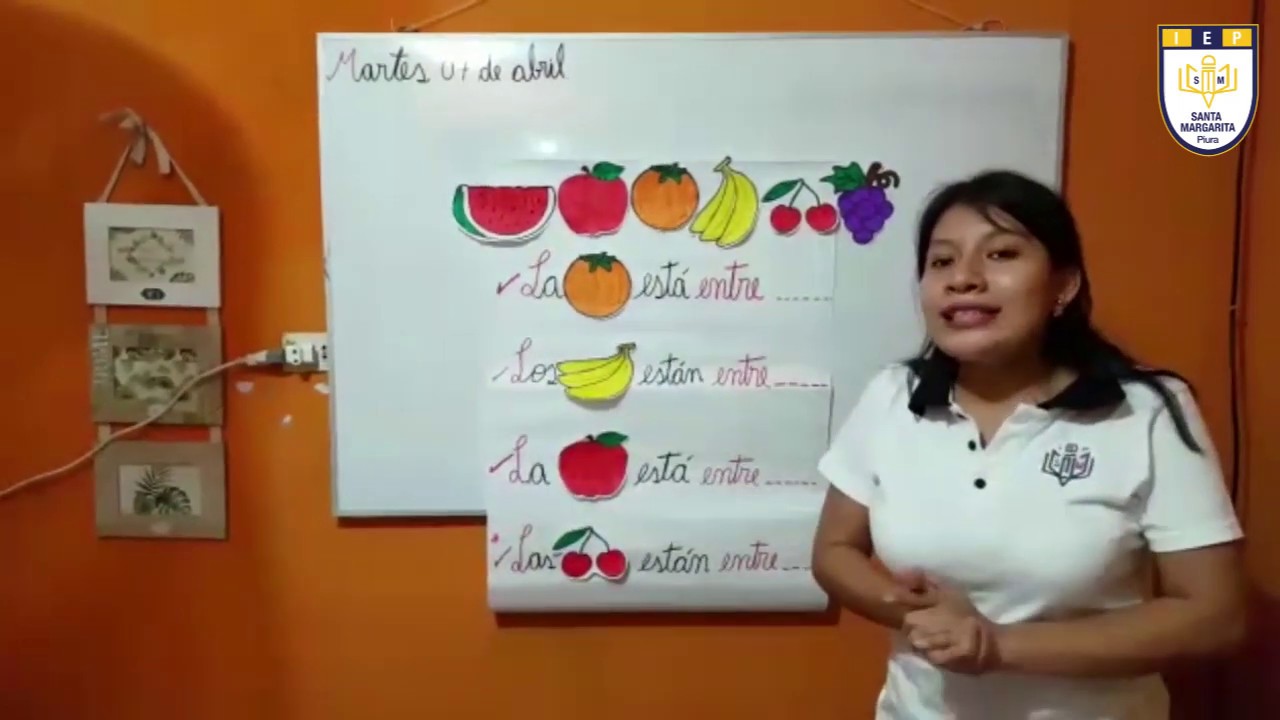 Martes 07 de abril
I E P
S M
SANTA
MARGARITA
Piura
La está entre ------
Los están entre -----
La está entre ------
Las están entre ----